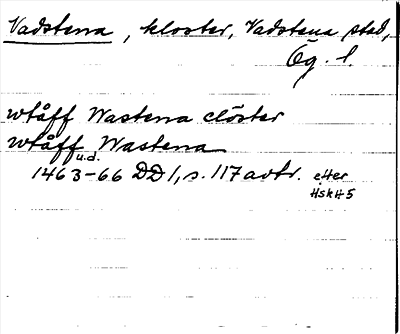 Vadstena, kloster, Vadstena stad,
Ög. l.
wtåff Wastena clöster
wtåff Wastena
u.d.
1463-66 DD 1, s. 117 avtr. efter
Hsk H 5